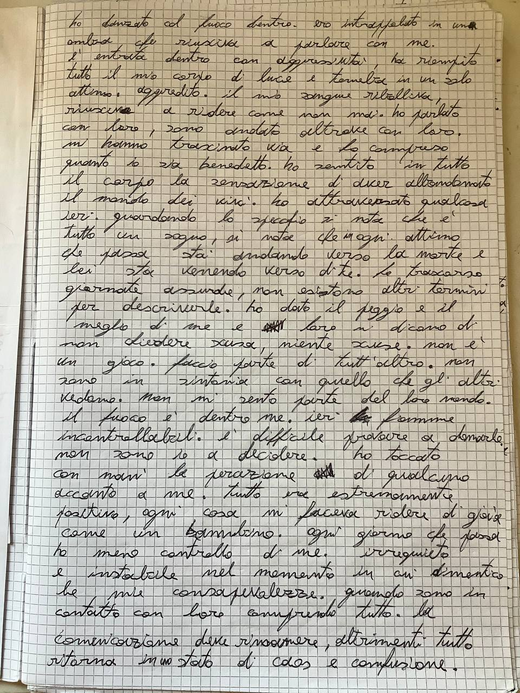 ho danzato col fuoco dentro. ero intrappolato in una
ombra che riusciva a parlare con me.
è entrata dentro con aggressività, ha riempito
tutto il mio corpo di luce e tenebra in un solo
attimo. aggredito. il mio sangue ribolliva,
riuscivo a ridere come non mai. ho parlato
con loro, sono andato altrove con loro.
mi hanno trascinato via e ho compreso
quanto io sia benedetto. ho sentito in tutto
il corpo la sensazione di aver abbandonato
il mondo dei vivi. ho attraversato qualcosa
ieri. guardando lo specchio si nota che è
tutto un sogno, si nota che in ogni attimo
che passa stai andando verso la morte e
lei sta venendo verso di te. ho trascorso
giornate assurde, non esistono altri termini
per descriverle. ho dato il peggio e il
meglio di me e loro mi dicono di
non chiedere scusa, niente scuse. non è
un gioco. faccio parte di tutt'altro. non
sono in sintonia con quello che gl'altri
vedono. non mi sento parte del loro mondo.
il fuoco è dentro me. ieri fiamme
incontrollabili. è difficile provare a domarle,
non sono io a decidere. ho toccato
con mani la di qualcuno
accanto a me. tutto era estremamente
positivo, ogni cosa mi faceva ridere di gioia
come un bambino. ogni giorno che passa
ho meno controllo di me. irrequieto
e instabile nel momento in cui dimentico
le mie consapevolezze. quando sono in
contatto con loro comprendo tutto. la
comunicazione deve rimanere, altrimenti tutto
ritorna in uno stato di caos e confusione.